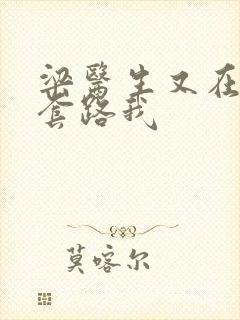 梁醫生又在
套路我
莫喀尔